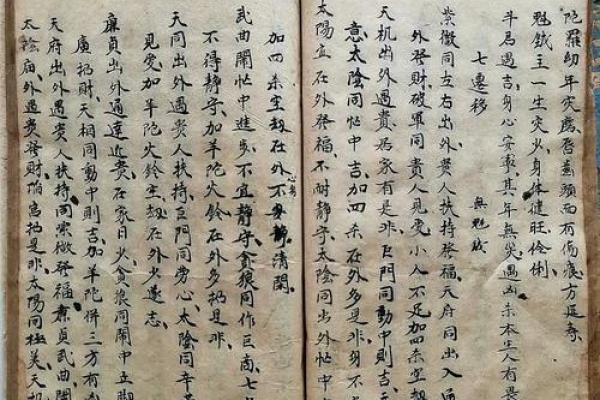 陀羅幼年災磨唇齒頭面有傷痕方延壽
魁鉞主一生災少身体健旺伶俐
斗君遇吉身心安寧其年無災遇凶杀本生人有畏
七遷移 無魁鉞
紫微同左右出外貴人扶持發福天府同出入通
外發財破軍同貴人見爱小人不足加四杀空刼
天机出外遇貴居家有是非巨門同動中則吉
意太陰同忙中吉加四杀在外多是非身不
太陽宜在外發福不耐静守太陰同出外忙中
加四杀空刼在外不静清閑
武曲閙忙中進步不宜静守貪狼同作巨商七
不得静守加羊陀火鈴在外多招是非
天同出外遇貴人扶持巨門同劳心太陰同辛
見爱加羊陀火鈴空刼在外少遂志
廉貞出外通達近貴在家日少貪狼同閙中立脚
廣招財天相同動中則吉加羊陀併三方有
天府出外遇貴人扶持同紫微發福廉貞武曲閙
太陰庙外遇貴發財陷宮招是非太陽同極美天机